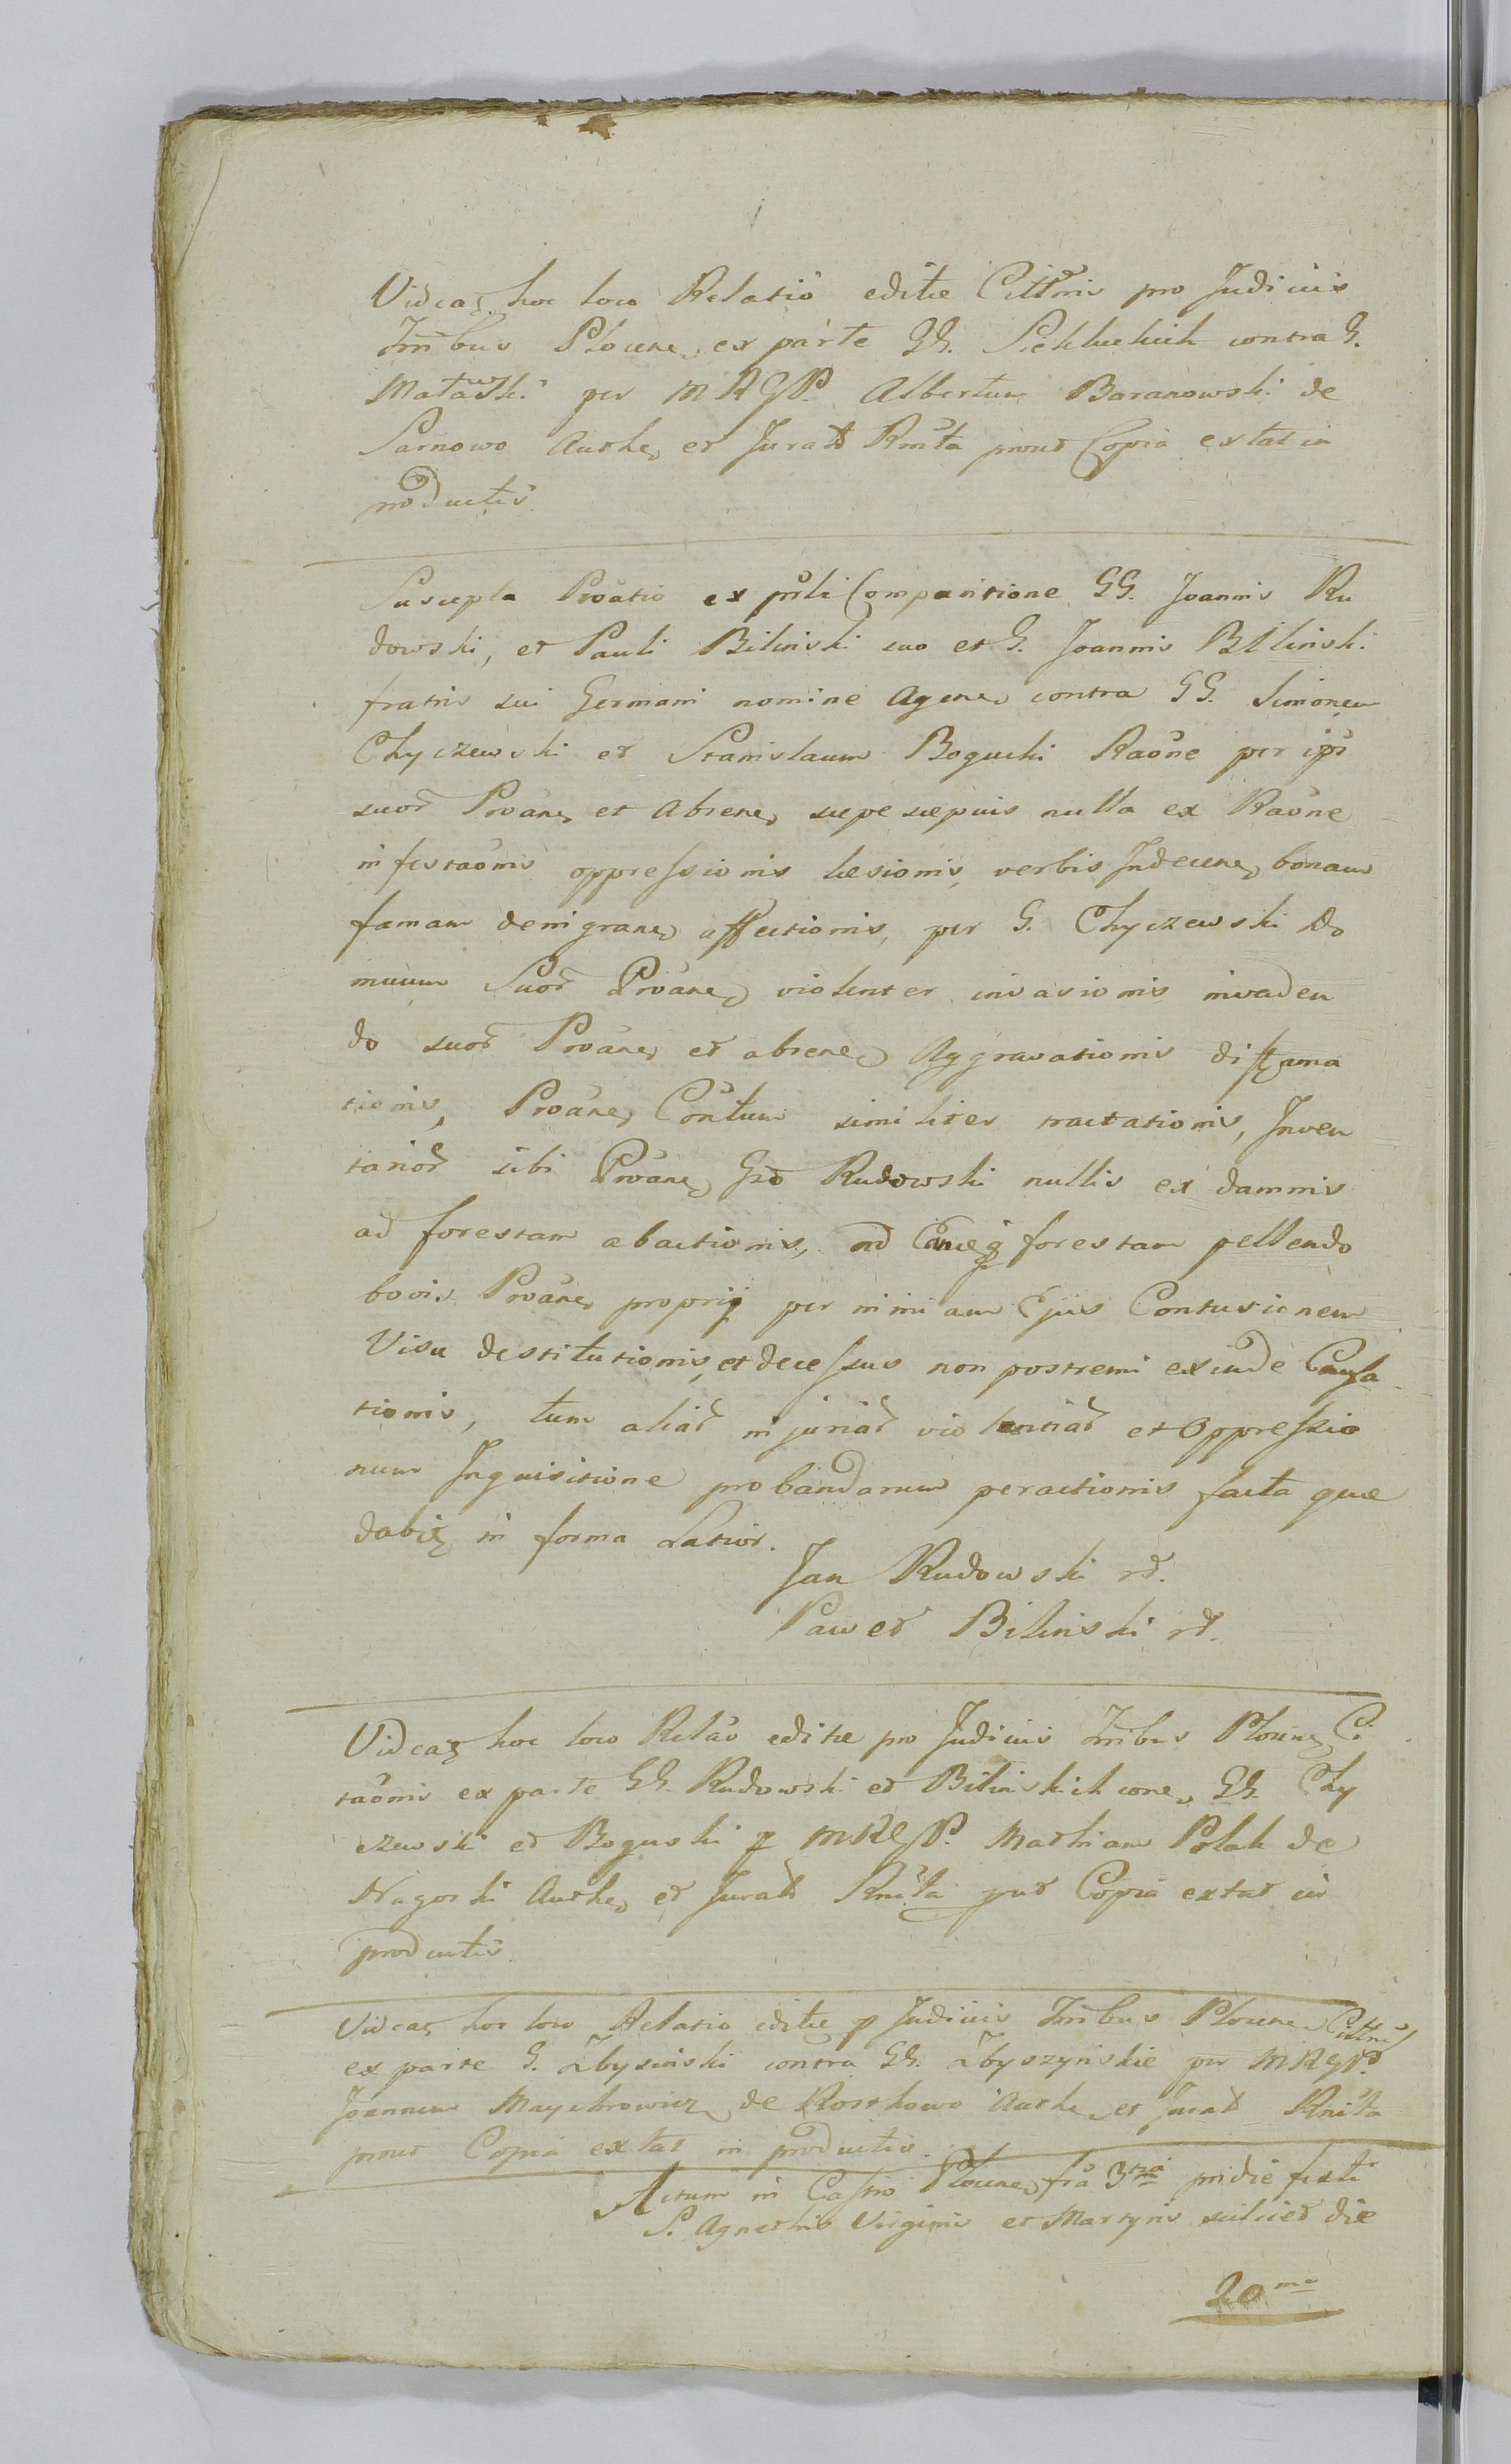 Videat hoc loco Relatio editæ Cittõnis pro Judiciis
Trñibus Plocen, ex parte GG. Siekluckich contra G.
Matawski per MRGP. Albertum Baranowski de
Sarnowo Authen et Jurat Rñita prout Copia extat in
productis.
Suscepta Proãtio ex pñti Comparitione GG. Joannis Ru
dowski, et Pauli Bilinski suo et G. Joannis Bilinski
fratris sui Germani nomine Agen, contra GG. Simonem
Chyczewski et Stanislaum Bogucki Raõne per ipõs
suor Proãn, et Absen, sæpe sæpius nulla ex Raõne
infestaõnis oppressionis læsionis, verbis Indecen, bonam
famam denigran, affectionis, per G. Chyczewski Do
muum Suor Proãn, violenter invasionis invaden
do suor Proãn, et absen, Aggravationis diffama
tionis, Proãn, Coñtum similiter tractationis, Inven
tarior sibi Proãn, Gso Rudowski nullis ex damnis
ad forestam abactionis, ad forestam pellendo
bovis Proãn, proprij per nimiam Ejus Contusionem
Visu destitutionis, et decessus non postremi exinde Causa
tionis, tum aliar injuriar violentiar et Oppressio
num Inquisitione probandarum peractionis facta quæ
dabit in forma Latior.
Jan Rudowski rd.
Paweł Bilinski rd.
Videat hoc loco Relão editæ pro Judiciis Trñibus Plocen, Ci
taõnis ex parte GG. Rudowski et Bilinskich con, GG. Chy
czewski et Boguski p MRGP. Mathiam Polak de
Nagorki Authen, et Jurat Rñita put Copia extat in
productis.
Videat hoc loco Relatio editæ p Judiciis Trñibus Plocen, Cittõnis
ex parte G. Zbysinski contra GG. Zbyszynskie per MRGP.
Joannem Maychrowicz de Rostkowo Authen, et Jurat Rñita
prout Copia extat in productis.
Actum in Castro Plocen, frã 3tia pridie festi
S. Agnethis Virginis et Martyris scilicet die
20ma